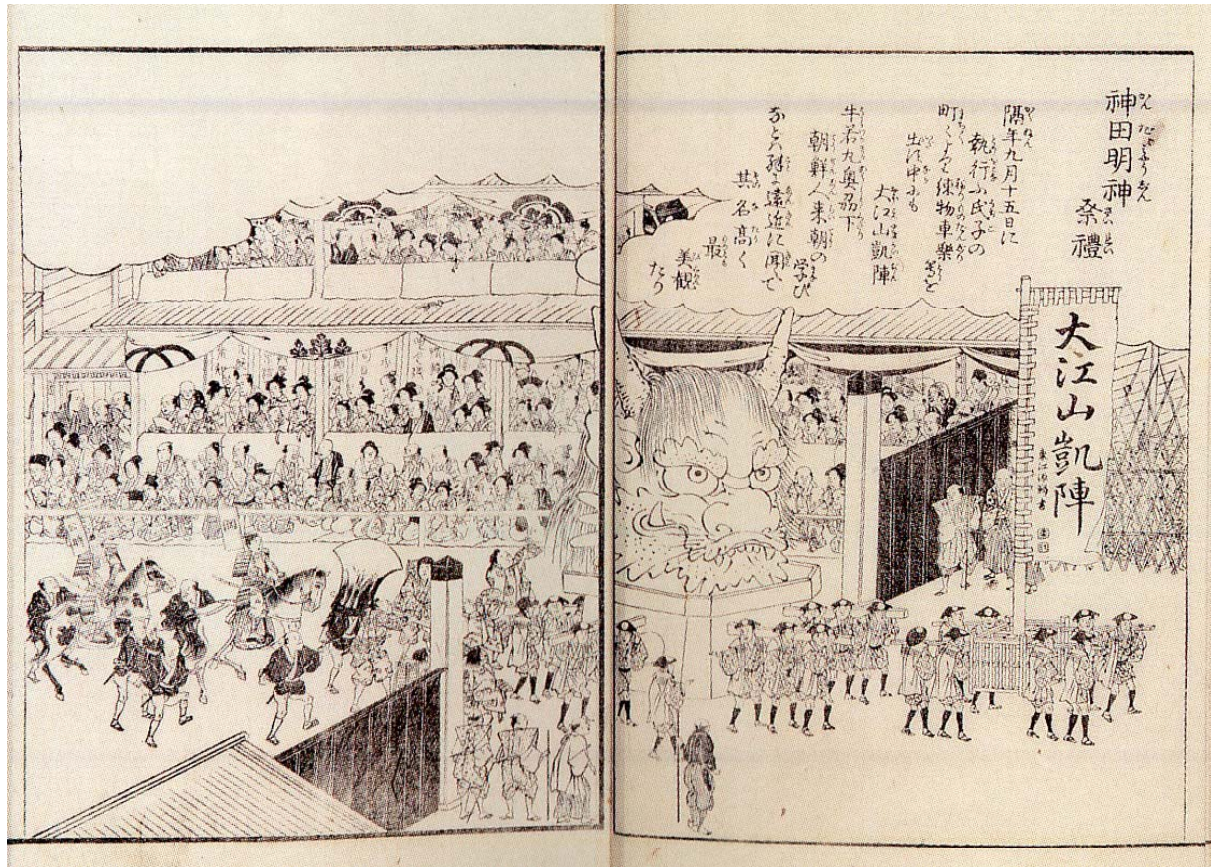 神田明神
祭禮
隔年九月十五日に
執行ふ氏子の
町々より練物車樂
等を
出す中にも
大江山凱陣
牛若丸奥州下
朝鮮人来朝の
学び
などハ殊に遠近に聞えて
其名高く
最
美観
たり
大江山凱陣